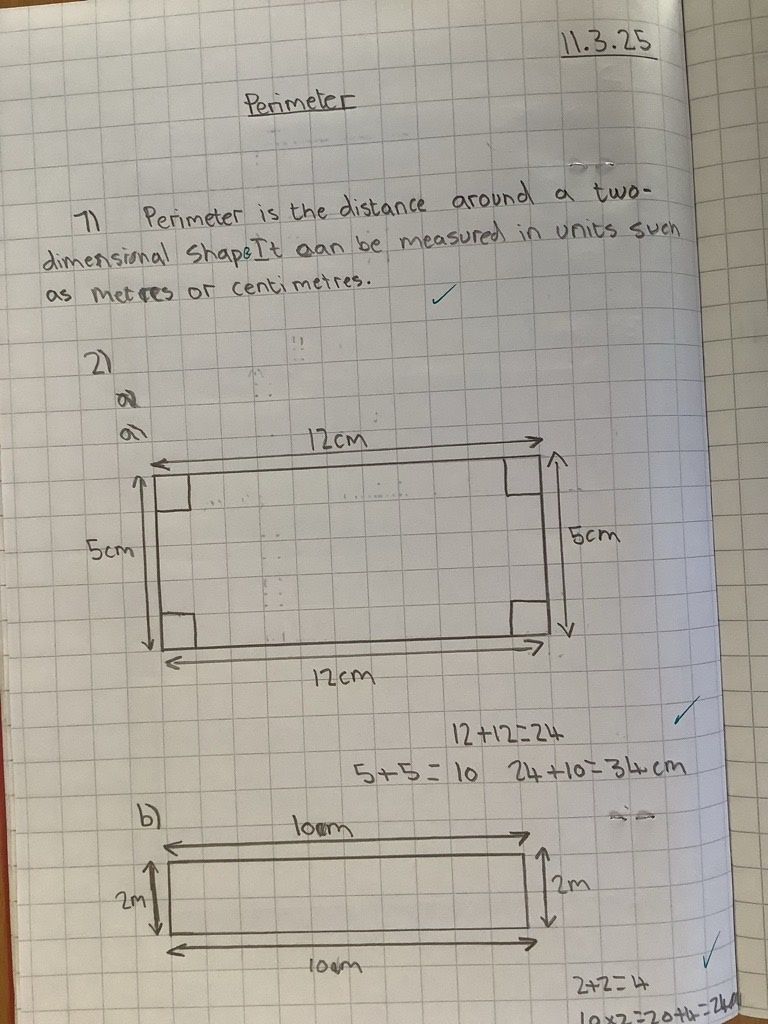 11.3.25
Perimeter
1) Perimeter is the distance around a two-
dimensional shape It can be measured in units such
as metres or centimetres.
2)
a)
a)
12cm
5cm
5cm
12cm
12+12=24
5+5=10 24+10=34cm
b)
10m
2m
2m
10m
2+2=4
10×2=20+4=24